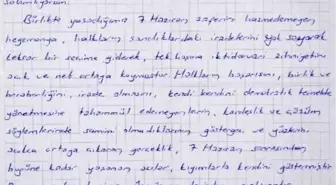 Birlikte yaşadığımız 7 Haziran zaferini hazmedemeyen
hegemonya, halkların sandıklardaki iradelerini yok sayarak
tekrar bir seçime giderek, tek başına iktidarları zihniyetini
açık ve net ortaya koymuştur. Halkların başarısını, birlik ve
beraberliğini, irade olmasını, kendi kendini demokratik temelde
yönetmesine tahammül edemeyenlerin, kardeşlik ve çözüm
söylemlerinde samimi olmadıklarının gösterge ve
açıkca ortaya çıkaran gerçeklik, 7 Haziran sonrasından
bugüne kadar yaşanan acılar, kıyımlarla kendini göstermiştir.